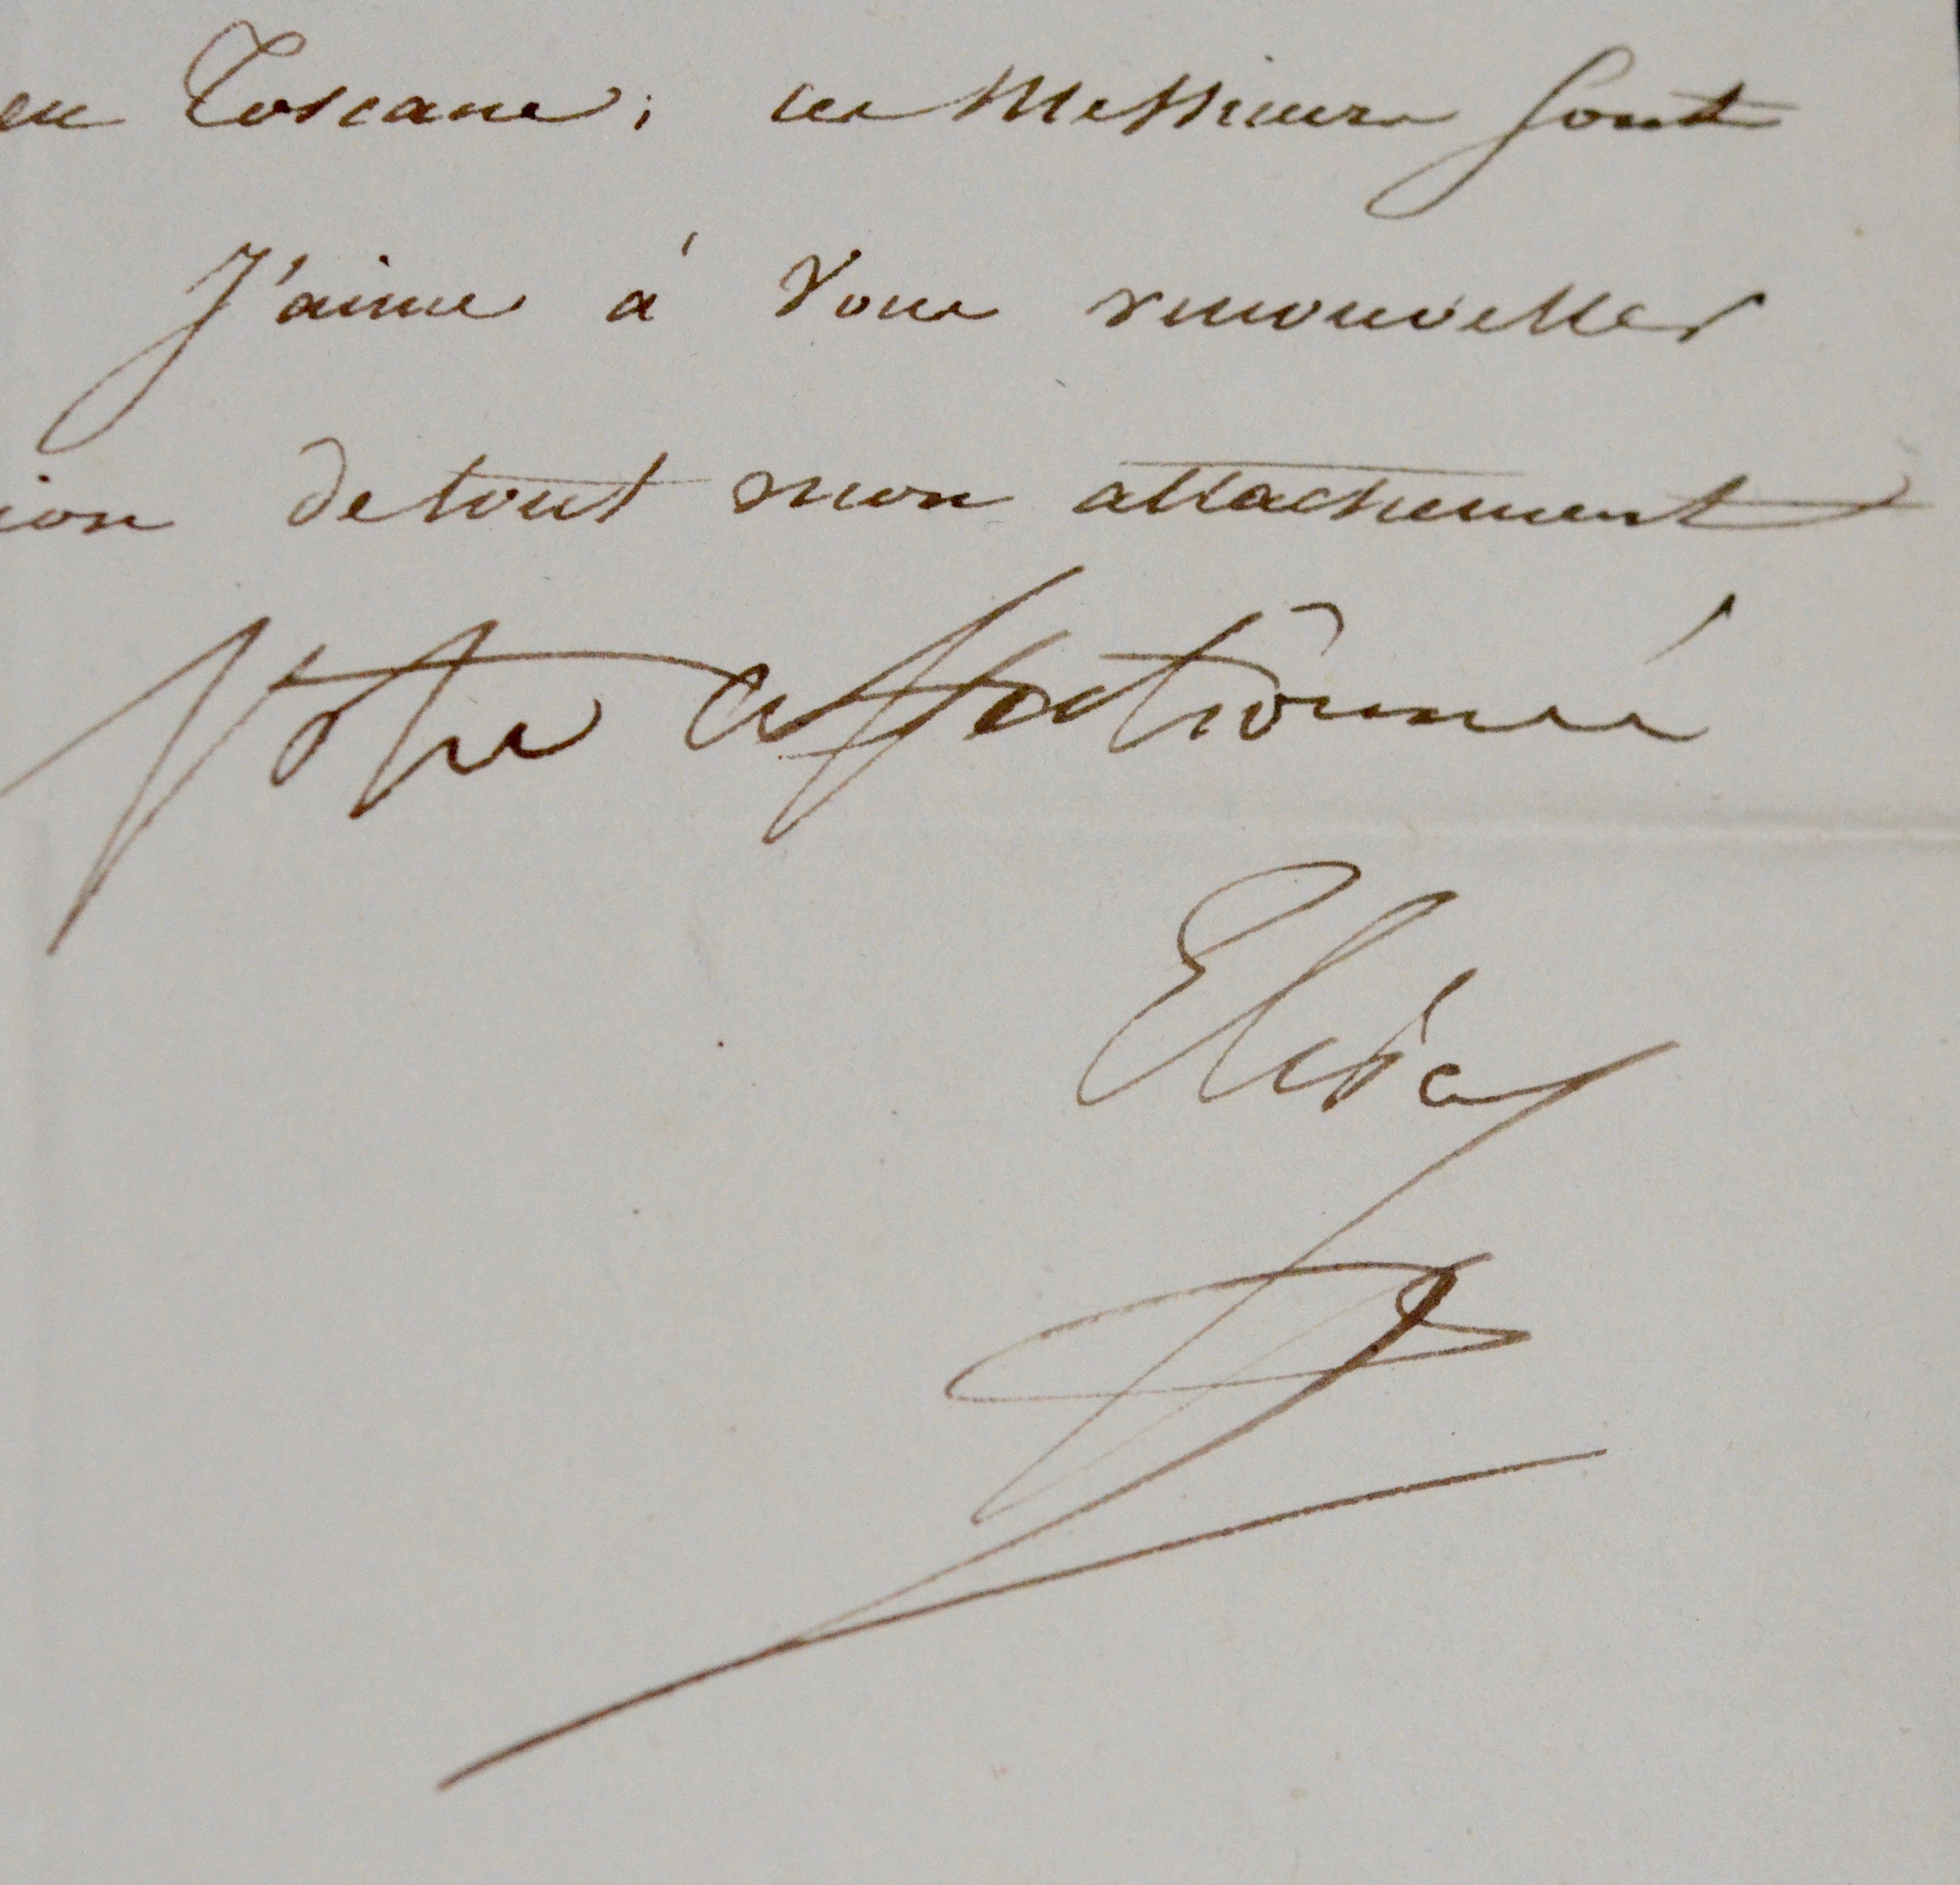 en Toscane; ces Messieurs sont
J'aime à vous renouveller
ion de tout mon attachement
Votre affectionnée
Elisa